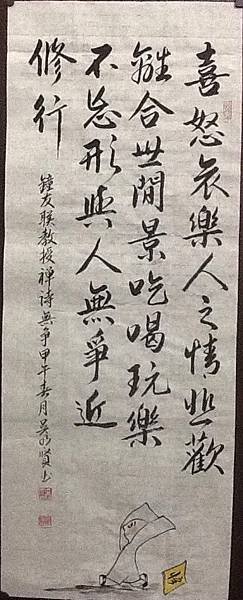 喜怒哀樂人之情悲歡
離合世間景吃喝玩樂
不忘形與人無爭近
修行
鐘友聯教授禪詩無爭甲午春月吳明賢書